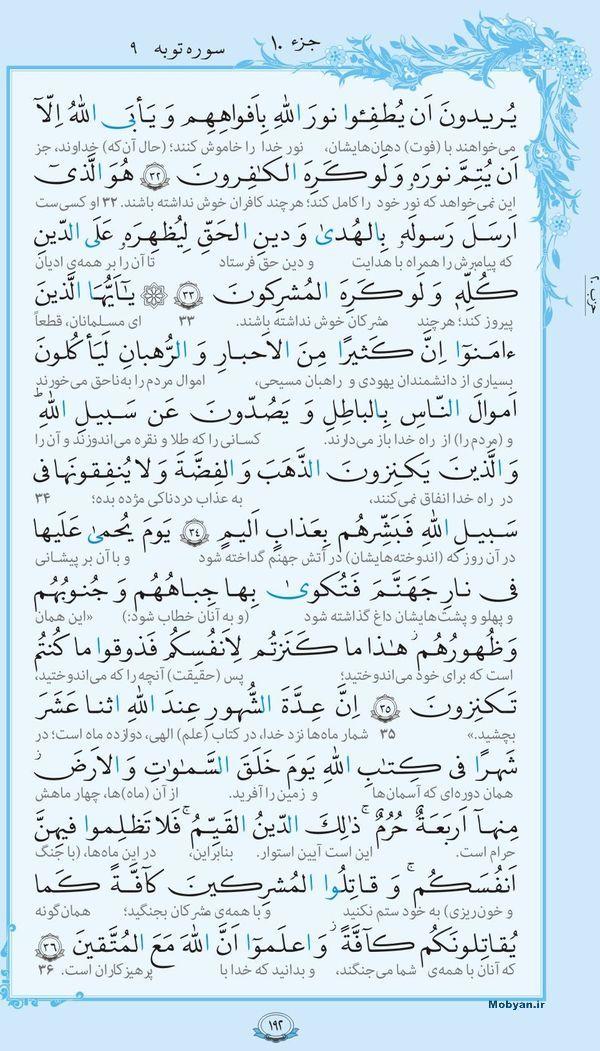 جزء ۱۰
سوره توبه ۹
حزب ۲۰
يُريدونَ اَن يُطفِئوا نورَ اللهِ بِاَفواهِهِم وَ يَأبَى اللهُ اِلّآ
می‌خواهند با (فوت) دهان‌هایشان، نور خدا را خاموش کنند؛ (حال آن‌که) خداوند، جز
اَن يُتِمَّ نورَهٗ وَلَو كَرِهَ الكٰفِرونَ ۳۲ هُوَ الَّذىٓ
این نمی‌خواهد که نور خود را کامل کند؛ هرچند کافران خوش نداشته باشند. ۳۲ او کسی‌ست
اَرسَلَ رَسولَهٗ بِالهُدىٰ وَ دينِ الحَقِّ لِيُظهِرَهٗ عَلَى الدّينِ
که پیامبرش را همراه با هدایت و دین حق فرستاد تا آن را بر همه‌ی ادیان
كُلِّهٖ وَ لَو كَرِهَ المُشرِكونَ ۳۳ يٰٓاَيُّهَا الَّذينَ
پیروز کند؛ هرچند مشرکان خوش نداشته باشند. ۳۳ ای مسلمانان، قطعاً
ءامَنوٓا اِنَّ كَثيرًا مِنَ الاَحبارِ وَ الرُّهبانِ لَيَأكُلونَ
بسیاری از دانشمندان یهودی و راهبان مسیحی، اموال مردم را به‌ناحق می‌خورند
اَموالَ النّاسِ بِالباطِلِ وَ يَصُدّونَ عَن سَبيلِ اللهِ ۗ
و (مردم را) از راه خدا باز می‌دارند. کسانی را که طلا و نقره می‌اندوزند و آن را
وَ الَّذينَ يَكنِزونَ الذَّهَبَ وَ الفِضَّةَ وَ لا يُنفِقونَها فى
در راه خدا انفاق نمی‌کنند، به عذاب دردناکی مژده بده؛ ۳۴
سَبيلِ اللهِ فَبَشِّرهُم بِعَذابٍ اَليمٍ ۳۴ يَومَ يُحمىٰ عَلَيها
در آن روز که (اندوخته‌هایشان) در آتش جهنم گداخته شود و با آن بر پیشانی
فى نارِ جَهَنَّمَ فَتُكوىٰ بِها جِباهُهُم وَ جُنوبُهُم
و پهلو و پشت‌هایشان داغ گذاشته شود (و به آنان خطاب شود:) «این همان
وَ ظُهورُهُم ۖ هٰذا ما كَنَزتُم لِاَنفُسِكُم فَذوقوا ما كُنتُم
است که برای خود می‌اندوختید؛ پس (حقیقت) آنچه را که می‌اندوختید،
تَكنِزونَ ۳۵ اِنَّ عِدَّةَ الشُّهورِ عِندَ اللهِ اثنا عَشَرَ
بچشید.» ۳۵ شمار ماه‌ها نزد خدا، در کتاب (علم) الهی، دوازده ماه است؛ در
شَهرًا فى كِتٰبِ اللهِ يَومَ خَلَقَ السَّمٰوٰتِ وَ الاَرضَ
همان دوره‌ای که آسمان‌ها و زمین را آفرید. از آن (ماه)ها، چهار ماهش
مِنهآ اَربَعَةٌ حُرُمٌ ۚ ذٰلِكَ الدّينُ القَيِّمُ ۚ فَلا تَظلِموا فيهِنَّ
حرام است. این است آیین استوار. بنابراین، در این ماه‌ها، (با جنگ
اَنفُسَكُم ۚ وَ قاتِلُوا المُشرِكينَ كآفَّةً كَما
و خون‌ریزی) به خود ستم نکنید و با همه‌ی مشرکان بجنگید؛ همان‌گونه
يُقاتِلونَكُم كآفَّةً ۚ وَ اعلَموٓا اَنَّ اللهَ مَعَ المُتَّقينَ ۳۶
که آنان با همه‌ی شما می‌جنگند، و بدانید که خدا با پرهیزکاران است. ۳۶
۱۹۲
Mobyan.ir